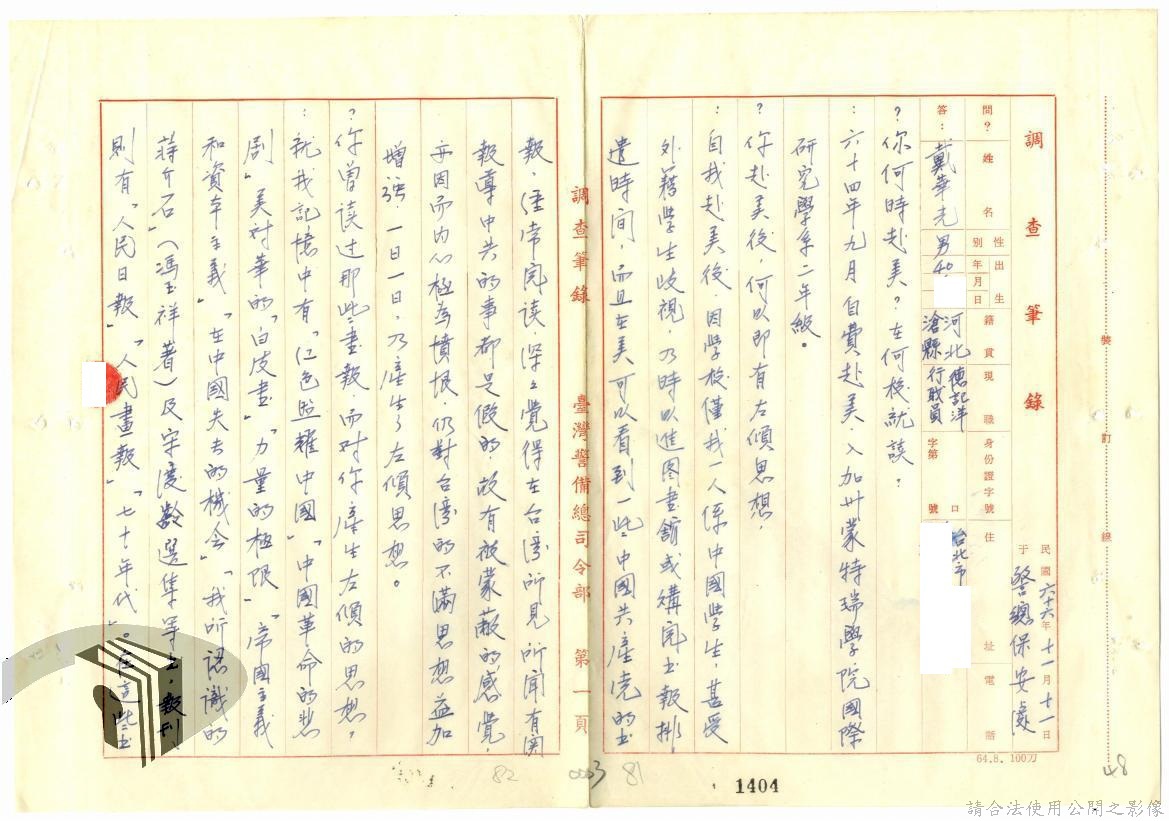 調查筆錄
民國六十六年十一月十一日
于 警總保安處
問？ 姓名 性別 出生年月日 籍貫 現職 身份證字號 住址 電話
答：戴華光 男 40. 河北滄縣 德記洋行職員 字第 口號 台北市
？你何時赴美？在何校就讀？
：六十四年九月自費赴美，入加州蒙特瑞學院國際
研究學系二年級。
？你赴美後，何以即有左傾思想，
：自我赴美後，因學校僅我一人係中國學生，甚受
外籍學生歧視，乃時以進图書館或購閱书報排
遣時间，而且在美可以看到一些中國共產党的书
調查筆錄 臺灣警備總司令部 第一頁
報，經常閱读，深深覺得在台湾所見所闻有関
報導中共的事都是假的，故有被蒙蔽的感覺，
亦因而内心極為憤恨，仍對台湾的不滿思想益加
增强，一日一日，乃產生了左傾思想。
？你曾读过那些書報，而对你產生左傾的思想，
：就我記憶中有「红色照耀中國」「中國革命的悲
劇」美对華的「白皮書」「力量的極限」「帝國主義
和資本主義」「在中國失去的機会」「我所認識的
蔣介石」(馮玉祥著)及宋慶齡選集等书，報刊
則有「人民日報」「人民畫報」「七十年代」。在這些书
64.8. 100刀
裝訂線
82
0003
81
1404
48
請合法使用公開之影像